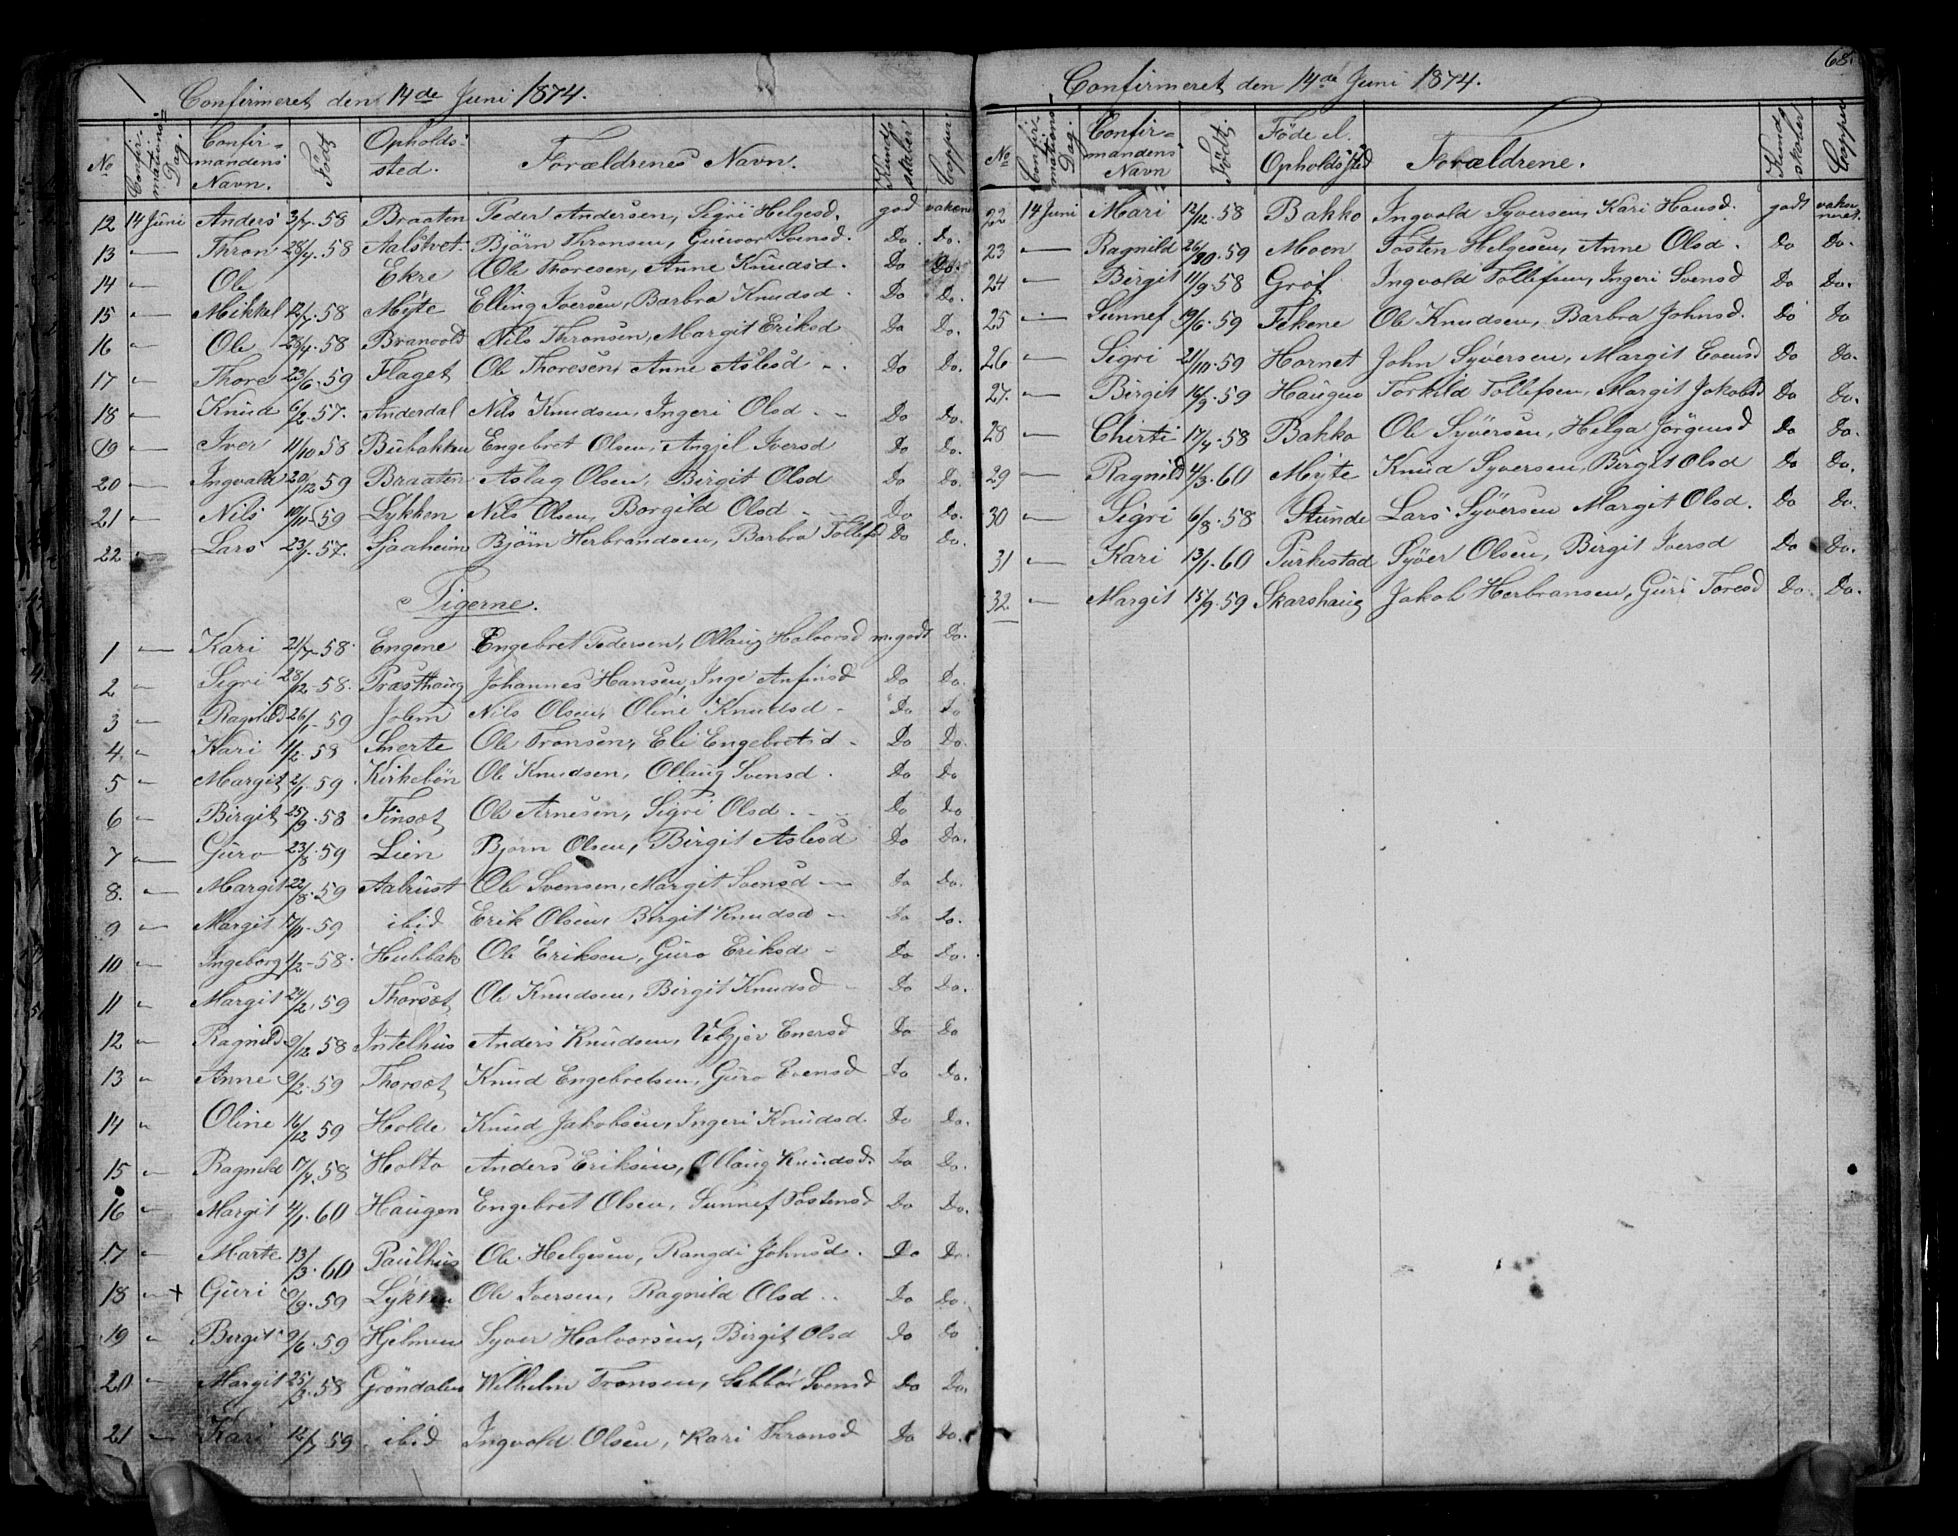 Confirmeret den 14de Juni 1874.
No Confirmations Dag. Confirmandens Navn. Födt Opholdssted. Forældrenes Navn. Kundskaber. Copper.
12 14 Juni Anders 3/7.58 Braaten Peder Andersen, Sigri Helgesd. god vakcin
13 — Thron 28/4.58 Aalstvet Björn Thronsen, Gunvor Svensd. Do. Do.
14 — Ole Ekre Ole Thoresen, Anne Knudsd. Do Do.
15 — Mikkel 12/7.58 Myte Elling Iversen, Barbra Knudsd. Do Do.
16 — Ole 28/4.58 Branvold Nils Thronsen, Margit Eriksd Do Do.
17 — Thore 23/6.59 Flaget Ole Thoresen, Anne Aslesd Do Do.
18 — Knud 6/2.57. Anderdal Nils Knudsen, Ingeri Olsd Do Do.
19 — Iver 11/10 58 Bubakken Engebret Olsen, Angjel Iversd Do Do.
20 — Ingvald 20/12 59 Braaten Aslag Olsen, Birgit Olsd Do Do.
21 — Nils 10/10 59 Lykken Nils Olsen, Borgild Olsd Do Do.
22 Lars 23/1.57. Sjaaheim Björn Herbrandsen, Barbra Tollefsd Do Do.
Pigerne.
1 — Kari 21/7 58 Engene Engebret Pedersen, Ollaug Halvorsd m. godt Do.
2 — Sigri 28/12.58. Præsthaug Johannes Hansen, Inge Anfinsd Do Do.
3 — Ragnild 26/1 59 Jolem Nils Olsen, Oline Knudsd Do Do
4 — Kari 1/2.58 Snerte Ole Tronsen, Eli Engebretsd Do Do.
5 — Margit 2/1.59. Kirkebön Ole Knudsen, Ollaug Svensd. Do Do
6 — Birgit 25/9.58 Finsæt Ole Arnesen, Sigri Olsd. Do Do
7 — Guro 23/8.59 Lien Björn Olsen, Birgit Aslesd Do Do.
8. — Margit 22/8.59 Aalrust Ole Svensen, Margit Svensd Do Do.
9 — Margit 17/11.59 ibid Erik Olsen, Birgit Knudsd Do Do.
10 — Ingeborg 1/2-58. Hulbak Ole Eriksen, Guro Eriksd Do Do.
11 — Margit 24/2,59 Thorsæt Ole Knudsen, Birgit Knudsd Do Do.
12 — Ragnild 9/12 58 Intelhus Anders Knudsen, Vebjør Enersd Do Do.
13 — Anne 9/2.59 Thorsæt Knud Engebretsen, Guro Evensd Do Do.
14 — Oline 16/12 59 Holde Knud Jakobsen, Ingeri Knudsd Do Do.
15 — Ragnild 17/7.58 Holto Anders Eriksen, Ollaug Knudsd. Do Do.
16 — Margit 4/1.60 Haugen Engebret Olsen, Sunnef Tostensd Do Do.
17 — Marte 13/3.60 Paulhus Ole Helgesen, Rangdi Johnsd. Do Do.
18 — + Guri 9/9.59 Lykken Ole Iversen, Ragnild Olsd Do Do.
19 — Birgit 9/6.59 Hjelmen Syver Halvorsen, Birgit Olsd Do Do
20 — Margit 25/3.58 Gröndalen Wilhelm Tronsen, Sebbör Svensd Do Do.
21 — Kari 12/7 59 ibid Ingvold Olsen, Kari Thronsd Do Do.
68.
Confirmeret den 14de Juni 1874.
No Confirmations Dag. Confirmandens Navn Födt. Föde el. Opholdssted Forældrene. Kundskaber Copper
22 14 Juni Mari 12/12.58 Bakko Ingvold Syversen, Kari Hansd. godt vakcineret.
23 — Ragnild 26/10.59 Moen Tosten Helgesen, Anne Olsd. Do Do.
24 — Birgit 11/9.58 Gröf Ingvold Tollefsen, Ingeri Svensd Do Do.
25 — Sunnef 19/6.59 Fekene Ole Knudsen, Barbra Johnsd. Do Do
26 — Sigri 21/10.59 Hornet John Syversen, Margit Evensd Do Do.
27. — Birgit 16/3.59 Haugen Torkild Tollefsen, Margit Jakobsd Do Do.
28 — Chirti 17/4.58 Bakko Ole Syversen, Helga Jörgensd Do Do.
29 — Ragnild 4/3.60 Myte Knud Syversen, Birgit Olsd Do Do.
30 — Sigri 6/8.58 Stunde Lars Syversen Margit Olsd. Do Do.
31 — Kari 13/1.60 Purkestad Syver Olsen, Birgit Iversd Do Do.
32. — Margit 15/9.59 Skarshaug Jakob Herbransen, Guri Toresd Do Do.